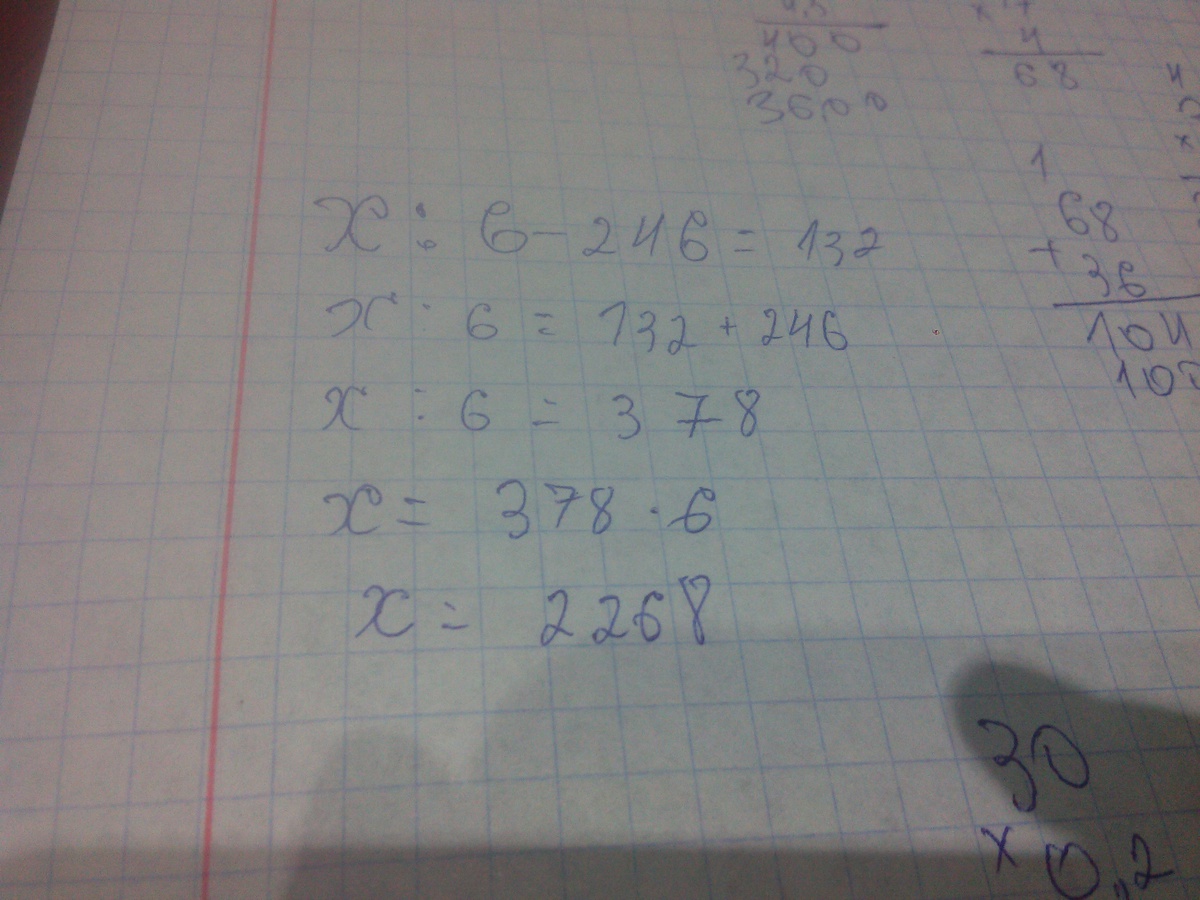 400
320
3600
4
68
x : 6 - 246 = 132
x : 6 = 132 + 246
x : 6 = 378
x = 378 · 6
x = 2268
1
68
+ 36
104
30
x 0,2